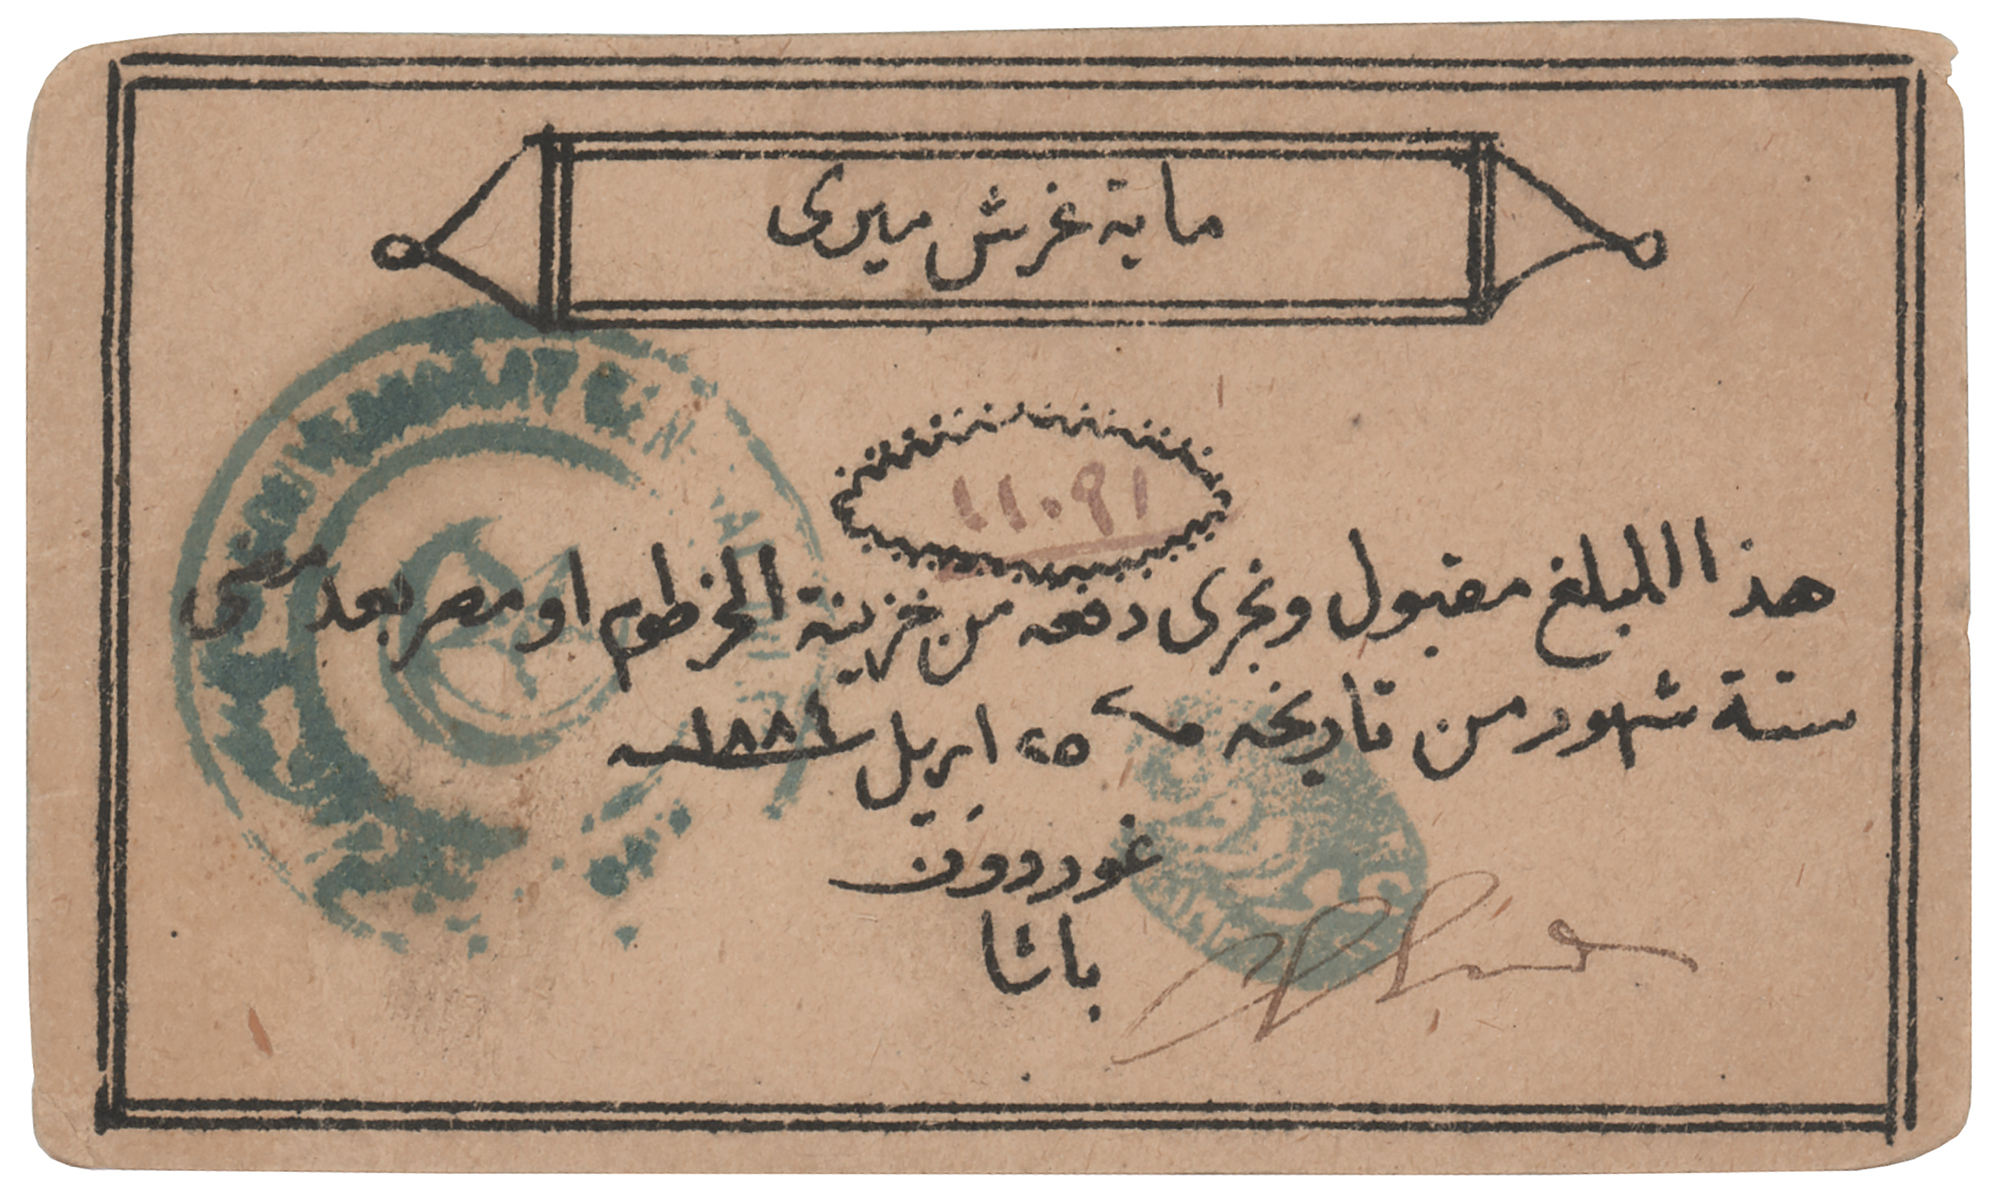 ماية غرش ميرى
١١٠٩١
هذا المبلغ مقبول ونجرى دفعه من خزينة الخرطوم او مصر بعد مضى
ستة شهور من تاريخه ٢٥ ابريل سنه ١٨٨٤
غوردون
باشا